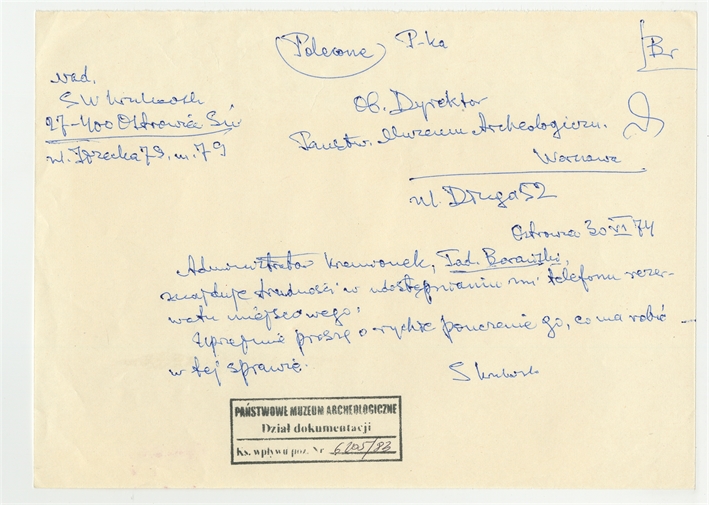 Polecone P-ka
Br
nad.
S W Krukowski
27-400 Ostrowiec Św
ul. Iłżecka 79, m. 79
Ob. Dyrektor
Państw. Muzeum Archeologiczn.
Warszawa
ul. Długa 52
Ostrowiec 30 VI 74
Administrator Krzemionek, Tad. Barański,
znajduje trudności w udostępnianiu mi telefonu rezer-
watu miejscowego.
Uprzejmie proszę o rychłe pouczenie go, co ma robić
w tej sprawie.
S Krukowski
PAŃSTWOWE MUZEUM ARCHEOLOGICZNE
Dział dokumentacji
Ks. wpływu poz. Nr 6205/93